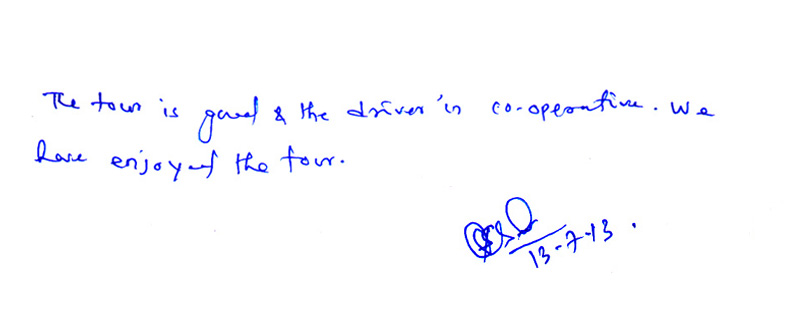 The tour is good & the driver is co-operative. We
have enjoyed the tour.
13-7-13.